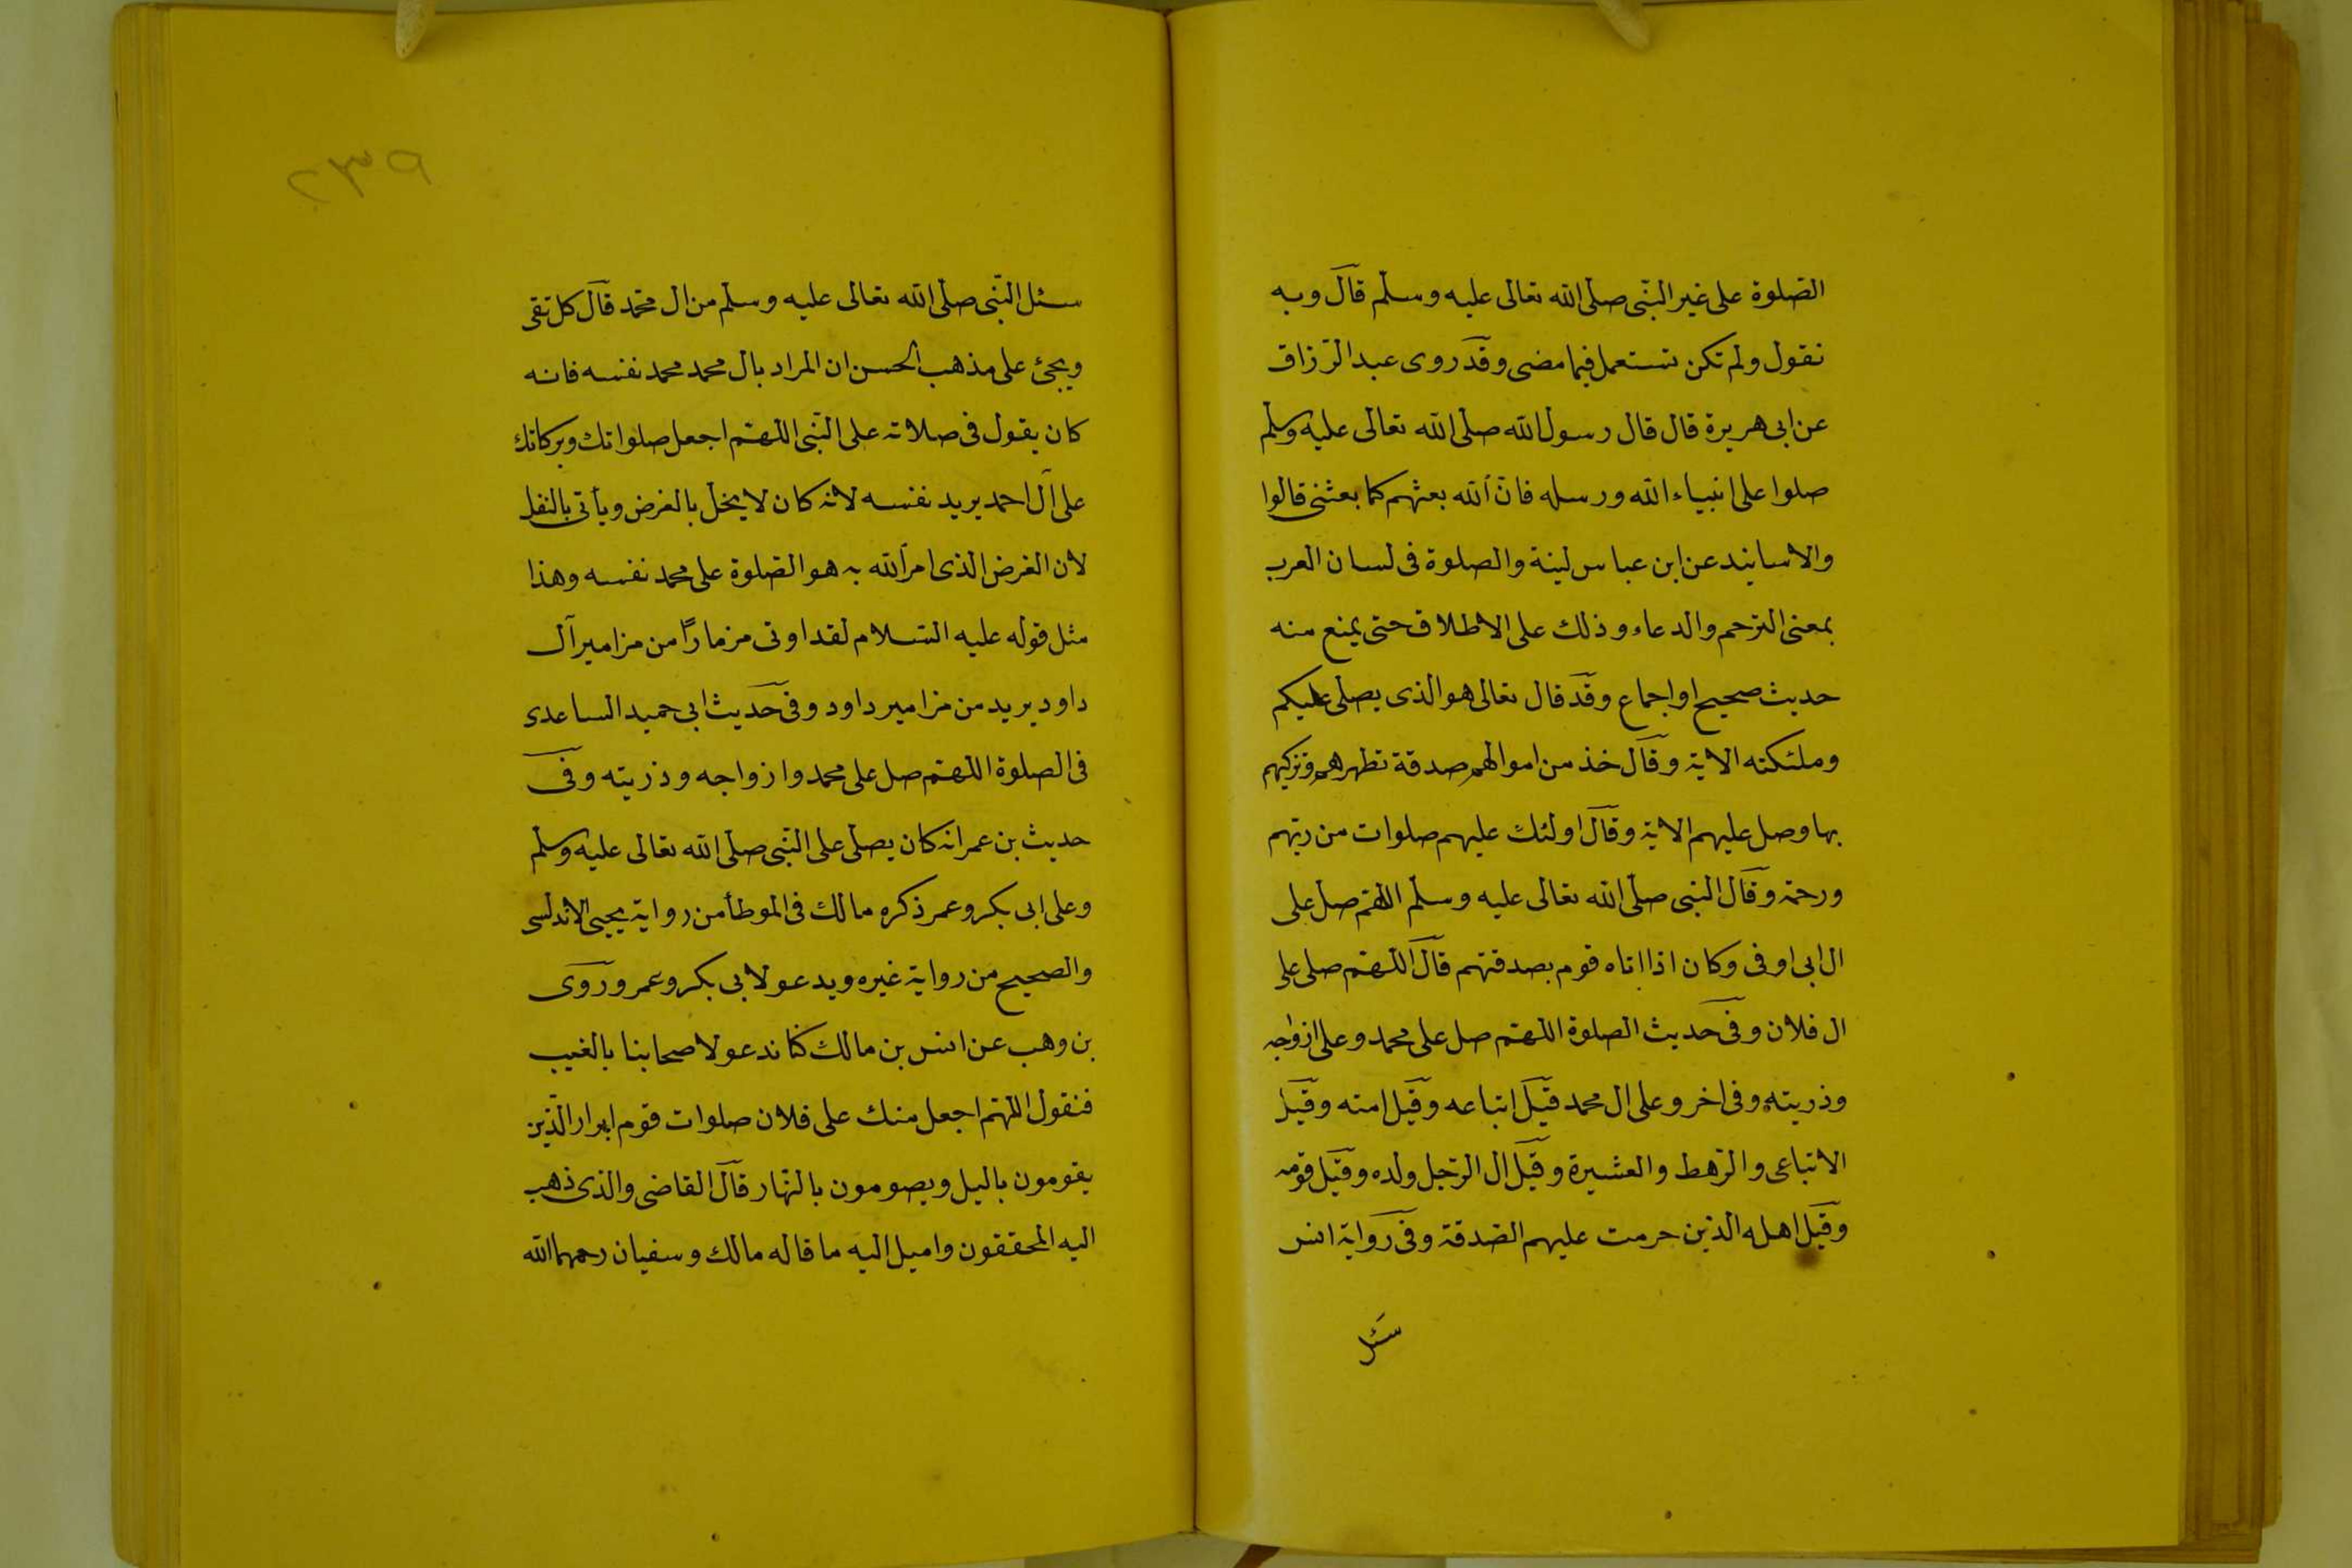 الصّلوة على غير النّبى صلّى الله تعالى عليه وسلّم قال وبه
نقول ولم تكن تستعمل فيما مضى وقد روى عبد الرّزاق
عن ابى هريرة قال قال رسول الله صلّى الله تعالى عليه وسلّم
صلوا على انبياء الله ورسله فانّ الله بعثهم كما بعثنى قالوا
والاسانيد عن ابن عباس لينة والصلوة فى لسان العرب
بمعنى الترحم والدعاء وذلك على الاطلاق حتى يمنع منه
حديث صحيح او اجماع وقد قال تعالى هو الذى يصلى عليكم
وملئكته الاية وقال خذ من اموالهم صدقة تطهرهم وتزكيهم
بها وصل عليهم الاية وقال اولئك عليهم صلوات من ربّهم
ورحمة وقال النبى صلّى الله تعالى عليه وسلّم اللّهم صل على
ال ابى اوفى وكان اذا اتاه قوم بصدقتهم قال اللّهمّ صلى على
ال فلان وفى حديث الصلوة اللّهمّ صل على محمد وعلى ازواجه
وذريته وفى اخر وعلى ال محمد قيل اتباعه وقيل امته وقيل
الاتباعى والرّهط والعشيرة وقيل ال الرّجل ولده وقيل قومه
وقيل اهله الذين حرمت عليهم الصّدقة وفى رواية انس
سئل
٥٣٢
سئل النّبى صلّى الله تعالى عليه وسلّم من ال محمّد قال كل تقى
ويجئ على مذهب الحسن ان المراد بال محمد محمد نفسه فانه
كان يقول فى صلاته على النّبى اللّهمّ اجعل صلواتك وبركاتك
على آل احمد يريد نفسه لانه كان لا يخل بالفرض ويأتى بالنفل
لان الفرض الذى امر الله به هو الصّلوة على محمد نفسه وهذا
مثل قوله عليه السّلام لقد اوتى مزمارًا من مزامير آل
داود يريد من مزامير داود وفى حديث ابى حميد الساعدى
فى الصلوة اللّهمّ صل على محمد وازواجه وذريته وفى
حديث بن عمر انه كان يصلى على النّبى صلّى الله تعالى عليه وسلّم
وعلى ابى بكر وعمر ذكره مالك فى الموطأ من رواية يحيى الاندلسى
والصحيح من رواية غيره ويدعو لابى بكر وعمر وروى
بن وهب عن انس بن مالك كنّا ندعو لاصحابنا بالغيب
فنقول اللّهم اجعل منك على فلان صلوات قوم ابرار الّذين
يقومون باليل ويصومون بالنّهار قال القاضى والذى ذهب
اليه المحققون واميل اليه ما قاله مالك وسفيان رحمهما الله